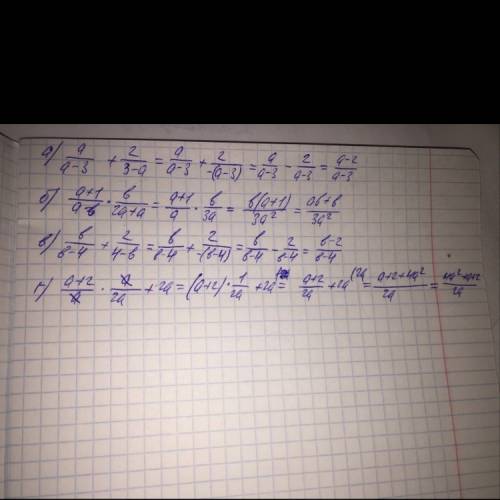 а) a/(a-3) + 2/(3-a) = a/(a-3) + 2/(-(a-3)) = a/(a-3) - 2/(a-3) = (a-2)/(a-3)
б) (a+1)/(a-в) · в/(2a+a) = (a+1)/a · в/(3a) = в(a+1)/(3a²) = (aв+в)/(3a²)
в) в/(в-4) + 2/(4-в) = в/(в-4) + 2/(-(в-4)) = в/(в-4) - 2/(в-4) = (в-2)/(в-4)
г) (a+2)/a · a/(2a) + 2a = (a+2) · 1/(2a) + 2a = (a+2)/(2a) + 2a (2a = (a+2+4a²)/(2a) = (4a²+a+2)/(2a)